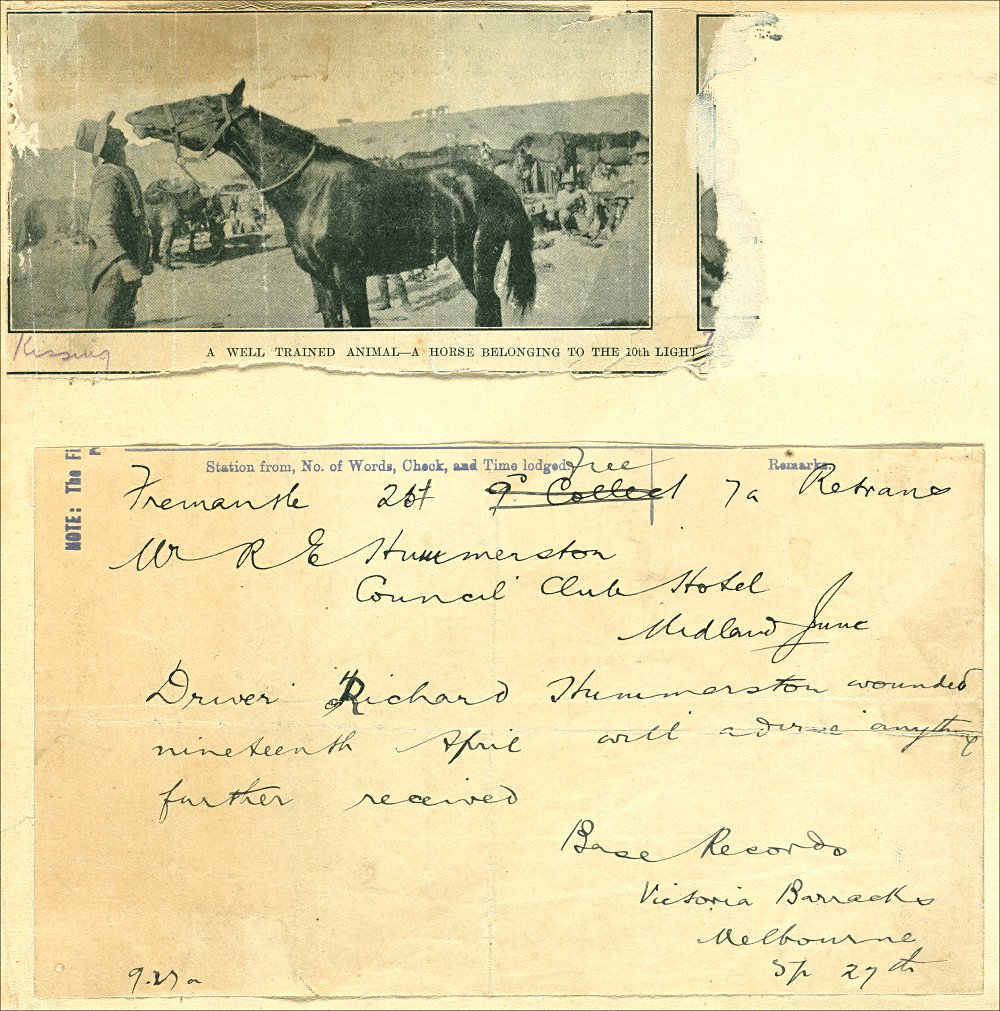 Kissing
A WELL TRAINED ANIMAL—A HORSE BELONGING TO THE 10th LIGHT
NOTE: The Fi
Station from, No. of Words, Check, and Time lodged. Remarks.
Free
Fremantle Collect 7a Retrans
Mr R E Hummerston
Council Club Hotel
Midland Junc
Driver Richard Hummerston wounded
nineteenth April will advise anything
further received
Base Records
Victoria Barracks
Melbourne
27th
9.27a